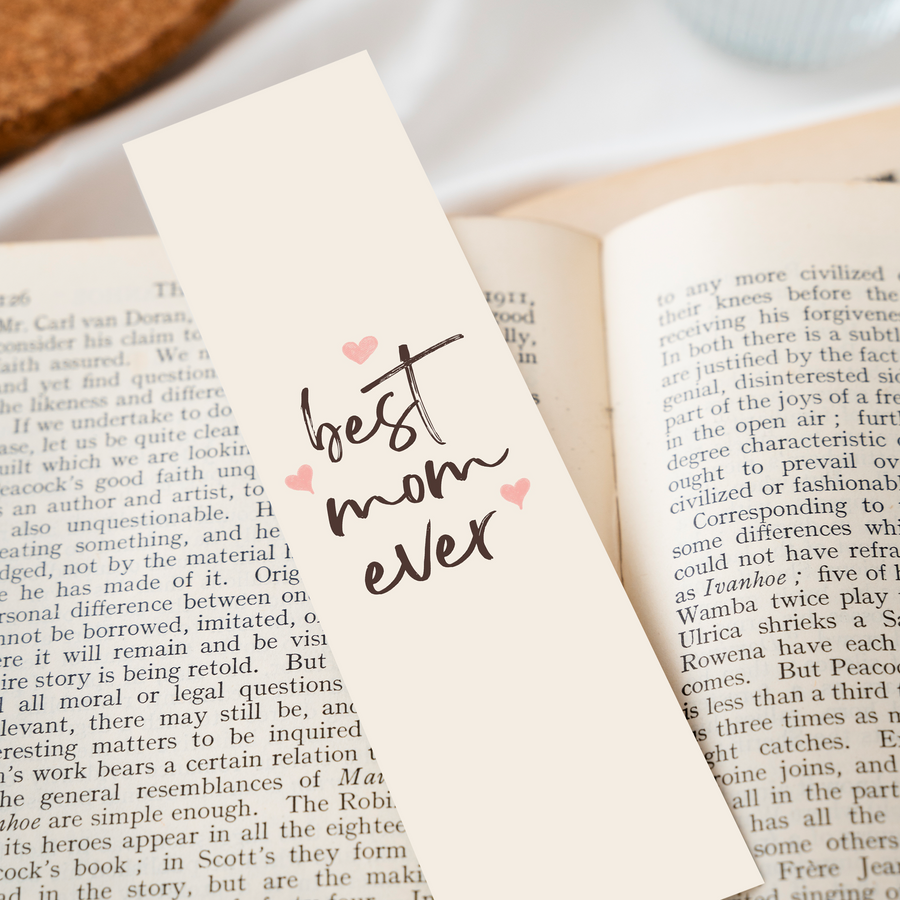 best
mom
ever
126
Mr. Carl van Doran,
consider his claim to
faith assured. We
and yet find question
the likeness and differe
If we undertake to do
ase, let us be quite clear
uilt which we are lookin
eacock's good faith unq
s an author and artist, to
also unquestionable. H
eating something, and he
dged, not by the material
e he has made of it. Orig
rsonal difference between on
nnot be borrowed, imitated, o
ere it will remain and be visi
ire story is being retold. But
l all moral or legal questions
levant, there may still be, and
eresting matters to be inquired
n's work bears a certain relation t
he general resemblances of Mai
nhoe are simple enough. The Robi
its heroes appear in all the eightee
cock's book ; in Scott's they form
ad in the story, but are the maki
1911,
good
lly,
in
to any more civilized
their knees before the
receiving his forgivenes
In both there is a subtl
are justified by the fact
genial, disinterested sid
part of the joys of a fre
in the open air ; furt
degree characteristic
ought to prevail ov
civilized or fashionabl
Corresponding to
some differences whi
could not have refra
as Ivanhoe ; five of h
Wamba twice play
Ulrica shrieks a Sa
Rowena have each
comes. But Peacoc
is less than a third
s three times as m
ght catches. E
roine joins, and
all in the part
has all the
some others
Frère Jean
singing o